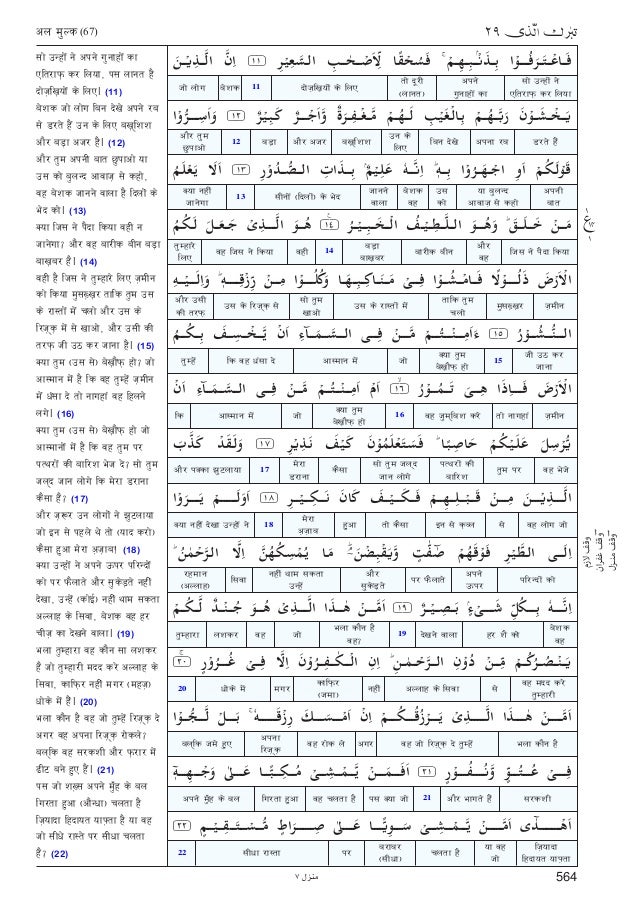 अल मुल्क (67)
تبٰرك الّذی ٢٩
सो उन्होंने अपने गुनाहों का
एतिराफ़ कर लिया, पस लानत है
दोज़ख़ियों के लिए। (11)
बेशक जो लोग बिन देखे अपने रब
से डरते हैं उन के लिए बख़्शिश
और बड़ा अजर है। (12)
और तुम अपनी बात छुपाओ या
उस को बुलन्द आवाज़ से कहो,
वह बेशक जानने वाला है दिलों के
भेद को। (13)
क्या जिस ने पैदा किया वही न
जानेगा? और वह बारीक बीन बड़ा
बाख़बर है। (14)
वही है जिस ने तुम्हारे लिए ज़मीन
को किया मुसख़्ख़र ताकि तुम उस
के रास्तों में चलो और उस के
रिज़्क़ में से खाओ, और उसी की
तरफ़ जी उठ कर जाना है। (15)
क्या तुम (उस से) बेख़ौफ़ हो? जो
आस्मान में है कि वह तुम्हें ज़मीन
में धंसा दे तो नागहां वह हिलने
लगे। (16)
क्या तुम (उस से) बेख़ौफ़ हो जो
आस्मानों में है कि वह तुम पर
पत्थरों की बारिश भेज दे? सो तुम
जल्द जान लोगे कि मेरा डराना
कैसा है? (17)
और ज़रूर उन लोगों ने झुटलाया
जो इन से पहले थे तो (याद करो)
कैसा हुआ मेरा अज़ाब! (18)
क्या उन्होंने ने अपने ऊपर परिन्दों
को पर फैलाते और सुकेड़ते नहीं
देखा, उन्हें (कोई) नहीं थाम सकता
अल्लाह के सिवा, बेशक वह हर
चीज़ का देखने वाला। (19)
भला तुम्हारा वह कौन सा लशकर
है जो तुम्हारी मदद करे अल्लाह के
सिवा, काफ़िर नहीं मगर (महज़)
धोके में हैं। (20)
भला कौन है वह जो तुम्हें रिज़्क़ दे
अगर वह अपना रिज़्क़ रोकले?
बल्कि वह सरकशी और फ़रार में
ढीट बने हुए हैं। (21)
पस जो शख़्स अपने मुँह के बल
गिरता हुआ (औन्धा) चलता है
ज़ियादा हिदायत याफ़्ता है या वह
जो सीधे रास्ते पर सीधा चलता
है? (22)
فَاعْتَرَفُوْا بِذَنْۢبِهِمْ ۚ فَسُحْقًا لِّاَصْحٰبِ السَّعِيْرِ ١١ اِنَّ الَّذِيْنَ
सो उन्होंने ने एतिराफ़ कर लिया | अपने गुनाहों का | तो दूरी (लानत) | दोज़ख़ियों के लिए | 11 | बेशक | जो लोग
يَخْشَوْنَ رَبَّهُمْ بِالْغَيْبِ لَهُمْ مَّغْفِرَةٌ وَّاَجْرٌ كَبِيْرٌ ١٢ وَاَسِرُّوْا
डरते हैं | अपना रब | बिन देखे | उन के लिए | बख़्शिश | और अजर | बड़ा | 12 | और तुम छुपाओ
قَوْلَكُمْ اَوِ اجْهَرُوْا بِهٖ ؕ اِنَّهٗ عَلِيْمٌۢ بِذَاتِ الصُّدُوْرِ ١٣ اَلَا يَعْلَمُ
अपनी बात | या बुलन्द आवाज़ से कहो | उस को | बेशक वह | जानने वाला | सीनों (दिलों) के भेद | 13 | क्या नहीं जानेगा
مَنْ خَلَقَ ؕ وَهُوَ اللَّطِيْفُ الْخَبِيْرُ ١٤ هُوَ الَّذِيْ جَعَلَ لَكُمُ
जिस ने पैदा किया | और वह | बारीक बीन | बड़ा बाख़बर | 14 | वही | वह जिस ने किया | तुम्हारे लिए
الْاَرْضَ ذَلُوْلًا فَامْشُوْا فِيْ مَنَاكِبِهَا وَكُلُوْا مِنْ رِّزْقِهٖ ؕ وَاِلَيْهِ
ज़मीन | मुसख़्ख़र | ताकि तुम चलो | उस के रास्तों में | सो तुम खाओ | उस के रिज़्क़ से | और उसी की तरफ़
النُّشُوْرُ ١٥ ءَاَمِنْتُمْ مَّنْ فِي السَّمَآءِ اَنْ يَّخْسِفَ بِكُمُ
जी उठ कर जाना | 15 | क्या तुम बेख़ौफ़ हो | जो | आस्मान में | कि वह धंसा दे | तुम्हें
الْاَرْضَ فَاِذَا هِيَ تَمُوْرُ ١٦ اَمْ اَمِنْتُمْ مَّنْ فِي السَّمَآءِ اَنْ
ज़मीन | तो नागहां | वह जुम्बिश करे | 16 | क्या तुम बेख़ौफ़ हो | जो | आस्मान में | कि
يُّرْسِلَ عَلَيْكُمْ حَاصِبًا ؕ فَسَتَعْلَمُوْنَ كَيْفَ نَذِيْرِ ١٧ وَلَقَدْ كَذَّبَ
वह भेजे | तुम पर | पत्थरों की बारिश | सो तुम जल्द जान लोगे | कैसा | मेरा डराना | 17 | और पक्का झुटलाया
الَّذِيْنَ مِنْ قَبْلِهِمْ فَكَيْفَ كَانَ نَكِيْرِ ١٨ اَوَلَمْ يَرَوْا
वह लोग जो | से | इन से क़ब्ल | तो कैसा | हुआ | मेरा अज़ाब | 18 | क्या नहीं देखा उन्हों ने
اِلَى الطَّيْرِ فَوْقَهُمْ صٰٓفّٰتٍ وَّيَقْبِضْنَ ؔ مَا يُمْسِكُهُنَّ اِلَّا الرَّحْمٰنُ ؕ
परिन्दों को | अपने ऊपर | पर फैलाते | और सुकेड़ते | नहीं थाम सकता उन्हें | सिवा | रहमान (अल्लाह)
اِنَّهٗ بِكُلِّ شَيْءٍۢ بَصِيْرٌ ١٩ اَمَّنْ هٰذَا الَّذِيْ هُوَ جُنْدٌ لَّكُمْ
बेशक वह | हर शै को | देखने वाला | 19 | भला कौन है वह? | जो | वह | लशकर | तुम्हारा
يَنْصُرُكُمْ مِّنْ دُوْنِ الرَّحْمٰنِ ؕ اِنِ الْكٰفِرُوْنَ اِلَّا فِيْ غُرُوْرٍ ٢٠
वह मदद करे तुम्हारी | से | अल्लाह के सिवा | नहीं | काफ़िर (जमा) | मगर | धोके में | 20
اَمَّنْ هٰذَا الَّذِيْ يَرْزُقُكُمْ اِنْ اَمْسَكَ رِزْقَهٗ ۚ بَلْ لَّجُّوْا
भला कौन है | वह जो रिज़्क़ दे तुम्हें | अगर | वह रोक ले | अपना रिज़्क़ | बल्कि जमे हुए
فِيْ عُتُوٍّ وَّنُفُوْرٍ ٢١ اَفَمَنْ يَّمْشِيْ مُكِبًّا عَلٰى وَجْهِهٖٓ
सरकशी | और भागते हैं | 21 | पस क्या जो | वह चलता है | गिरता हुआ | अपने मुँह के बल
اَهْدٰٓى اَمَّنْ يَّمْشِيْ سَوِيًّا عَلٰى صِرَاطٍ مُّسْتَقِيْمٍ ٢٢
ज़ियादा हिदायत याफ़्ता | या वह जो | चलता है | बराबर (सीधा) | पर | सीधा रास्ता | 22
وقف لازم
وقف غفران
وقف منزل
منزل ٧
564